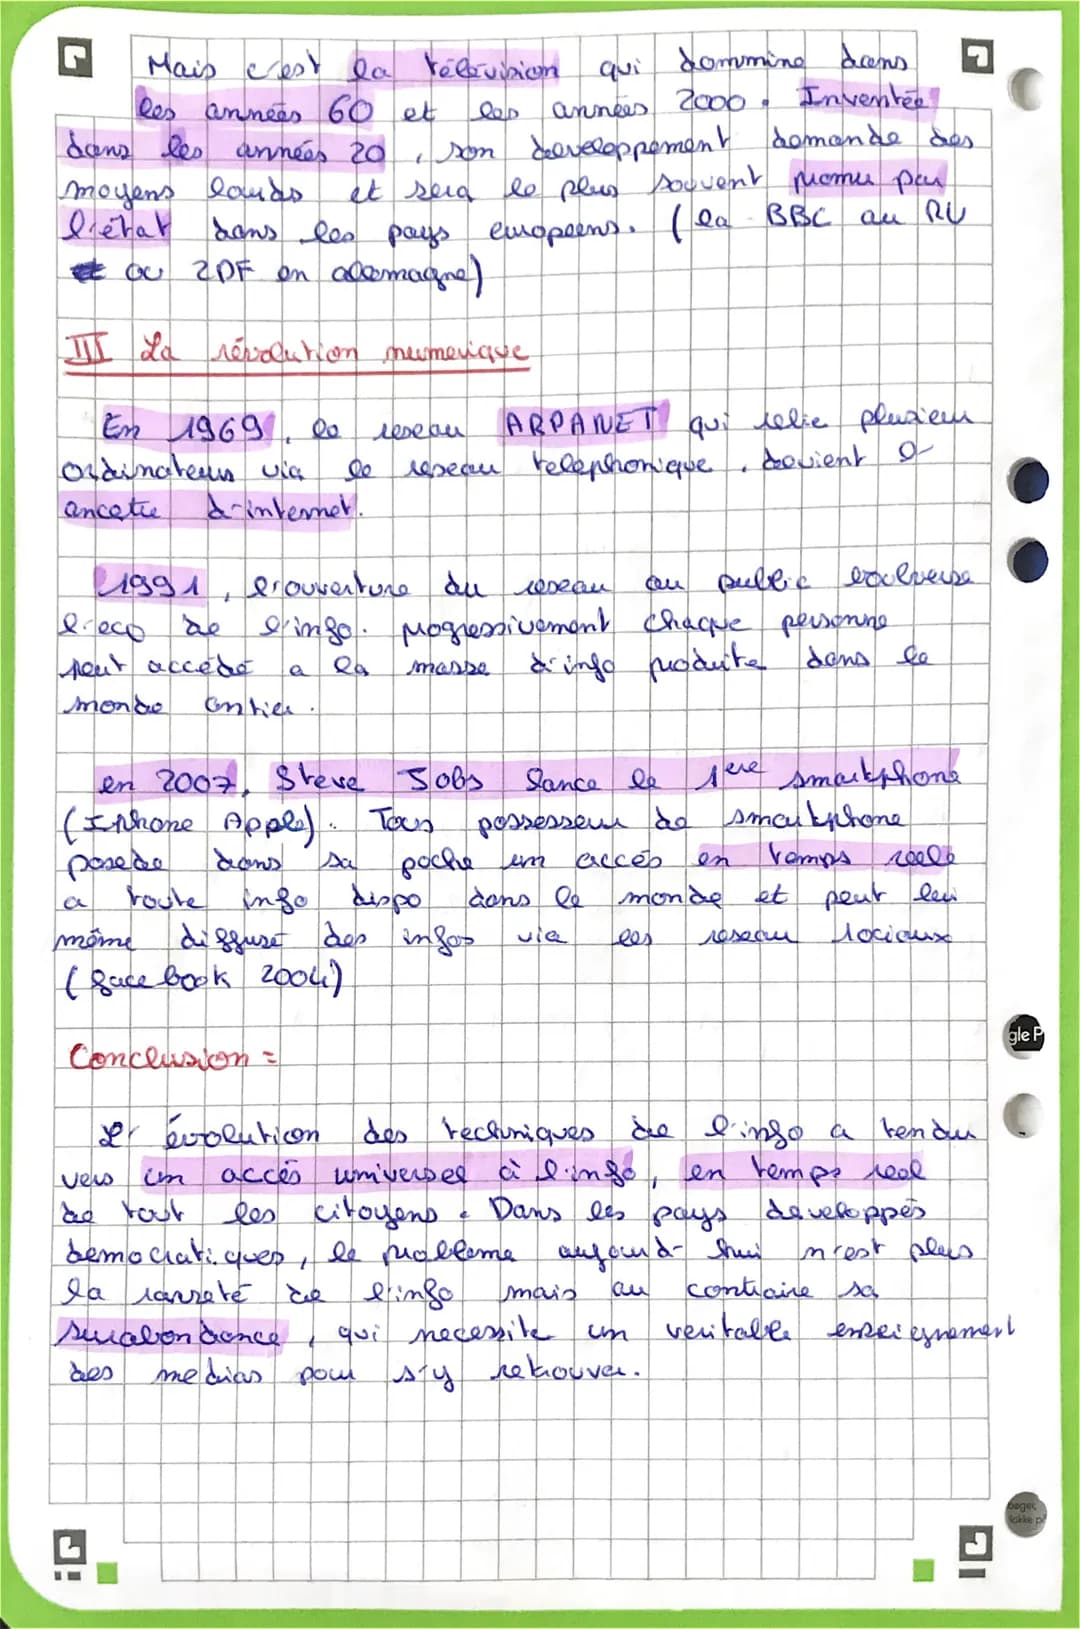 Mais c'est la télévision qui dommine dans
les années 60 et les années 2000. Inventée
dans les années 20, son developpement demande des
moyens lourds et sera le plus souvent promu par
l'état dans les pays europeens. (la BBC au RU
ou ZDF en allemagne)
III La révolution numerique
En 1969, le reseau ARPANET qui relie plusieur
ordinateurs via le reseau telephonique, devient l'
ancetre d'internet.
1991, l'ouverture du reseau au public boulverse
l'eco de l'info. progressivement chaque personne
peut accédé a la masse d'info produite dans le
monde entier.
en 2007, Steve Jobs lance le 1ere smartphone
(Iphone Apple). Tous possesseur de smartphone
posede dans sa poche un accés en temps reele
a toute info dispo dans le monde et peut lui
même diffusé des infos via les reseau sociaux
(facebook 2004)
Conclusion =
L' évolution des techniques de l'info a tendu
vers un accés universel à l'info, en temps real
de tout les citoyens. Dans les pays developpés
democratiques, le probleme aujourd'hui n'est plus
la rareté de l'info mais au contraire sa
surabondance, qui necessite un veritable enseignement
des medias pour s'y retrouver.
gle P